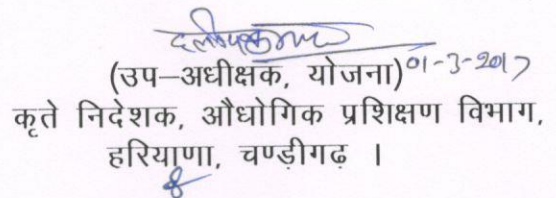 (उप–अधीक्षक, योजना) 01-3-2017
कृते निदेशक, औधोगिक प्रशिक्षण विभाग,
हरियाणा, चण्डीगढ़ ।